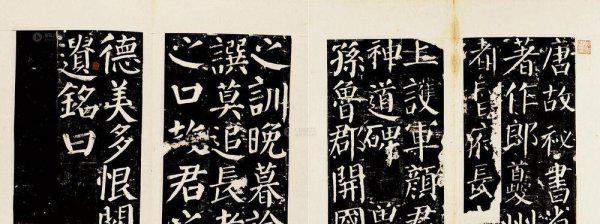 唐故秘書省
著作郎夔州
都督府長
上護軍顏君
神道碑曾
孫魯郡開國
之訓晚暮
譔莫追長老
之口故君之
德美多恨闕
遺銘曰